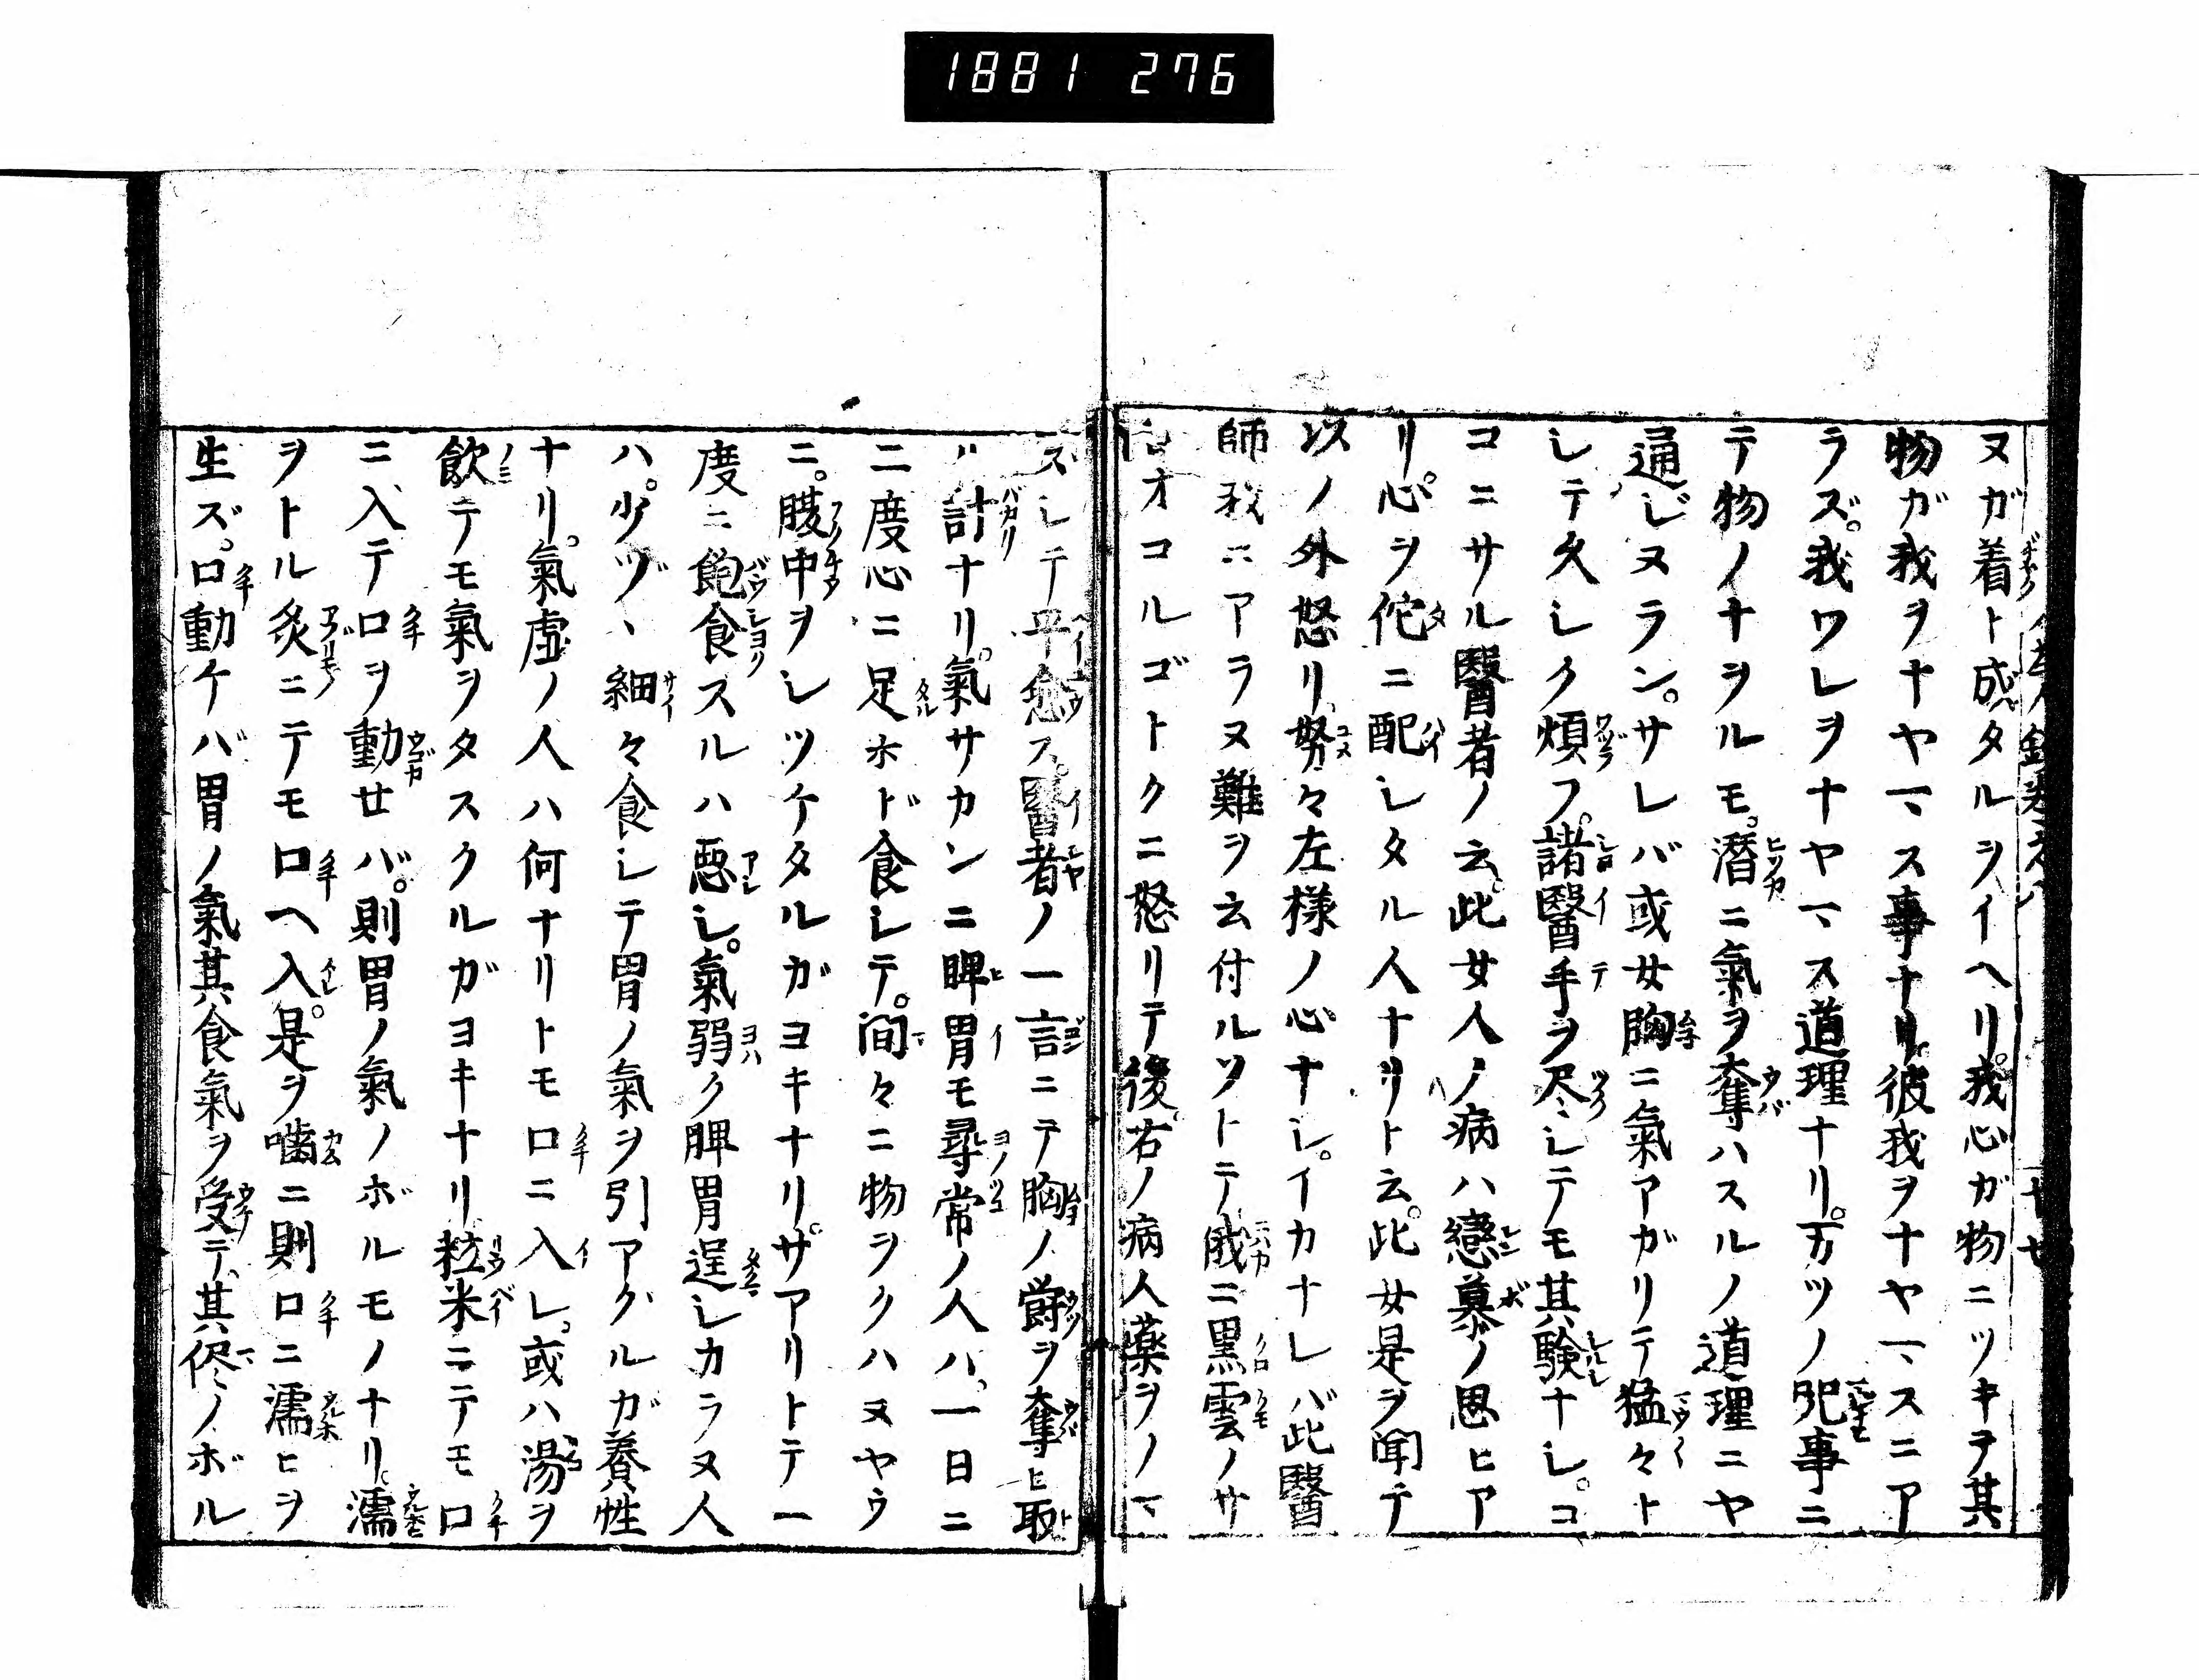 1881 276
ヌガ着ト成タルヲイヘリ。我心ガ物ニツキヲ其
物ガ我ヲナヤマス事ナリ。彼我ヲナヤマスニア
ラズ。我ワレヲナヤマス道理ナリ。万ツノ咒事ニ
テ物ノナヲルモ。潜ニ氣ヲ奪ハスルノ道理ニヤ
通ジヌラン。サレバ或女胸ニ氣アガリテ猛々ト
シテ久シク煩フ。諸醫手ヲ尽シテモ其験ナシ。コ
コニサル醫者ノ云。此女人ノ病ハ戀慕ノ思ヒア
リ。心ヲ佗ニ配シタル人ナリト云。此女是ヲ聞テ
以ノ外怒リ。努々左様ノ心ナシ。イカナレバ此醫
師我ニアラヌ難ヲ云付ルソトテ俄ニ黒雲ノサ
オコルゴトクニ怒リテ後。右ノ病人薬ヲノマ
ズシテ平愈ス。醫者ノ一言ニテ胸ノ欝ヲ奪ヒ取
ル計ナリ。氣サカンニ脾胃モ尋常ノ人ハ。一日ニ
二度心ニ足ホド食シテ。間々ニ物ヲクハヌヤウ
ニ。腹中ヲシツケタルガヨキナリ。サアリトテ一
度ニ飽食スルハ惡シ。氣弱ク脾胃逞シカラヌ人
ハ。少ヅヽ細々食シテ胃ノ氣ヲ引アグルガ養性
ナリ。氣虚ノ人ハ何ナリトモ口ニ入レ。或ハ湯ヲ
飲テモ氣ヲタスクルガヨキナリ粒米ニテモ口
ニ入テ口ヲ動せバ。則胃ノ氣ノボルモノナリ。濡
ヲトル炙ニテモ口ヘ入。是ヲ噛ニ則口ニ濡ヒヲ
生ズ。口動ケバ胃ノ氣其食氣ヲ受テ。其侭ノボル